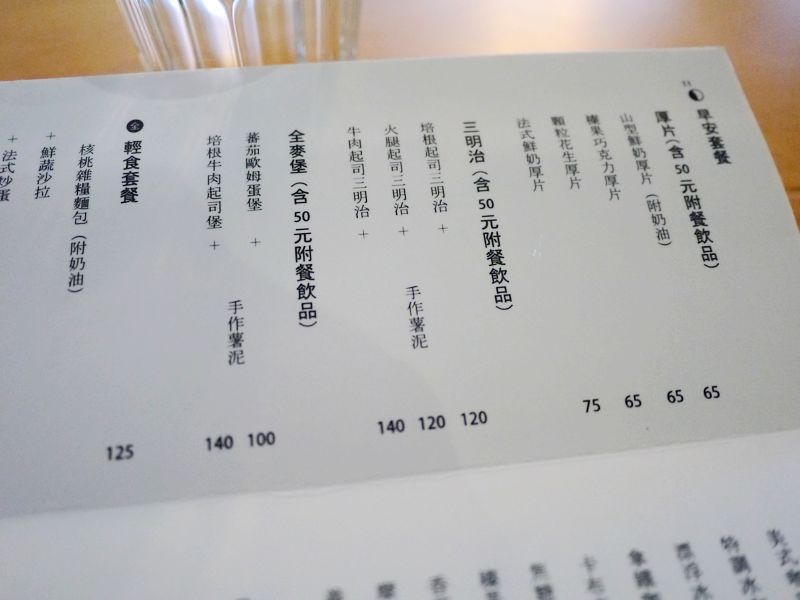 早安套餐
厚片（含 50 元附餐飲品）
山型鮮奶厚片（附奶油） 65
榛果巧克力厚片 65
顆粒花生厚片 65
法式鮮奶厚片 75
三明治（含 50 元附餐飲品）
培根起司三明治 + 120
火腿起司三明治 + 手作薯泥 120
牛肉起司三明治 + 140
全麥堡（含 50 元附餐飲品）
蕃茄歐姆蛋堡 + 手作薯泥 100
培根牛肉起司堡 + 140
全 輕食套餐
核桃雜糧麵包（附奶油） 125
+ 鮮蔬沙拉
+ 法式炒蛋
美式
特調冰
漂浮冰
拿鐵
卡布
焦糖
榛果